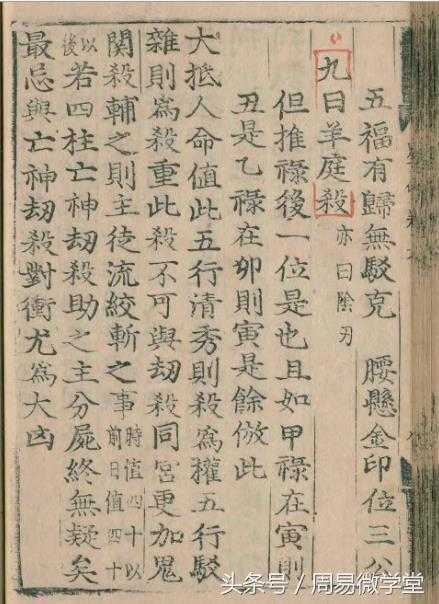 五福有歸無駁克　腰懸金印位三公
九曰羊庭殺 亦曰陰刃
但推祿後一位是也且如甲祿在寅則
丑是乙祿在卯則寅是餘倣此
大抵人命值此五行清秀則殺爲權五行駁
雜則爲殺重此殺不可與劫殺同宮更加鬼
関殺輔之則主徒流絞斬之事 時值四十以前日值四十
以後 若四柱亡神劫殺助之主分屍終無疑矣
最忌與亡神劫殺對衝尤爲大凶
头条号 / 周易微学堂